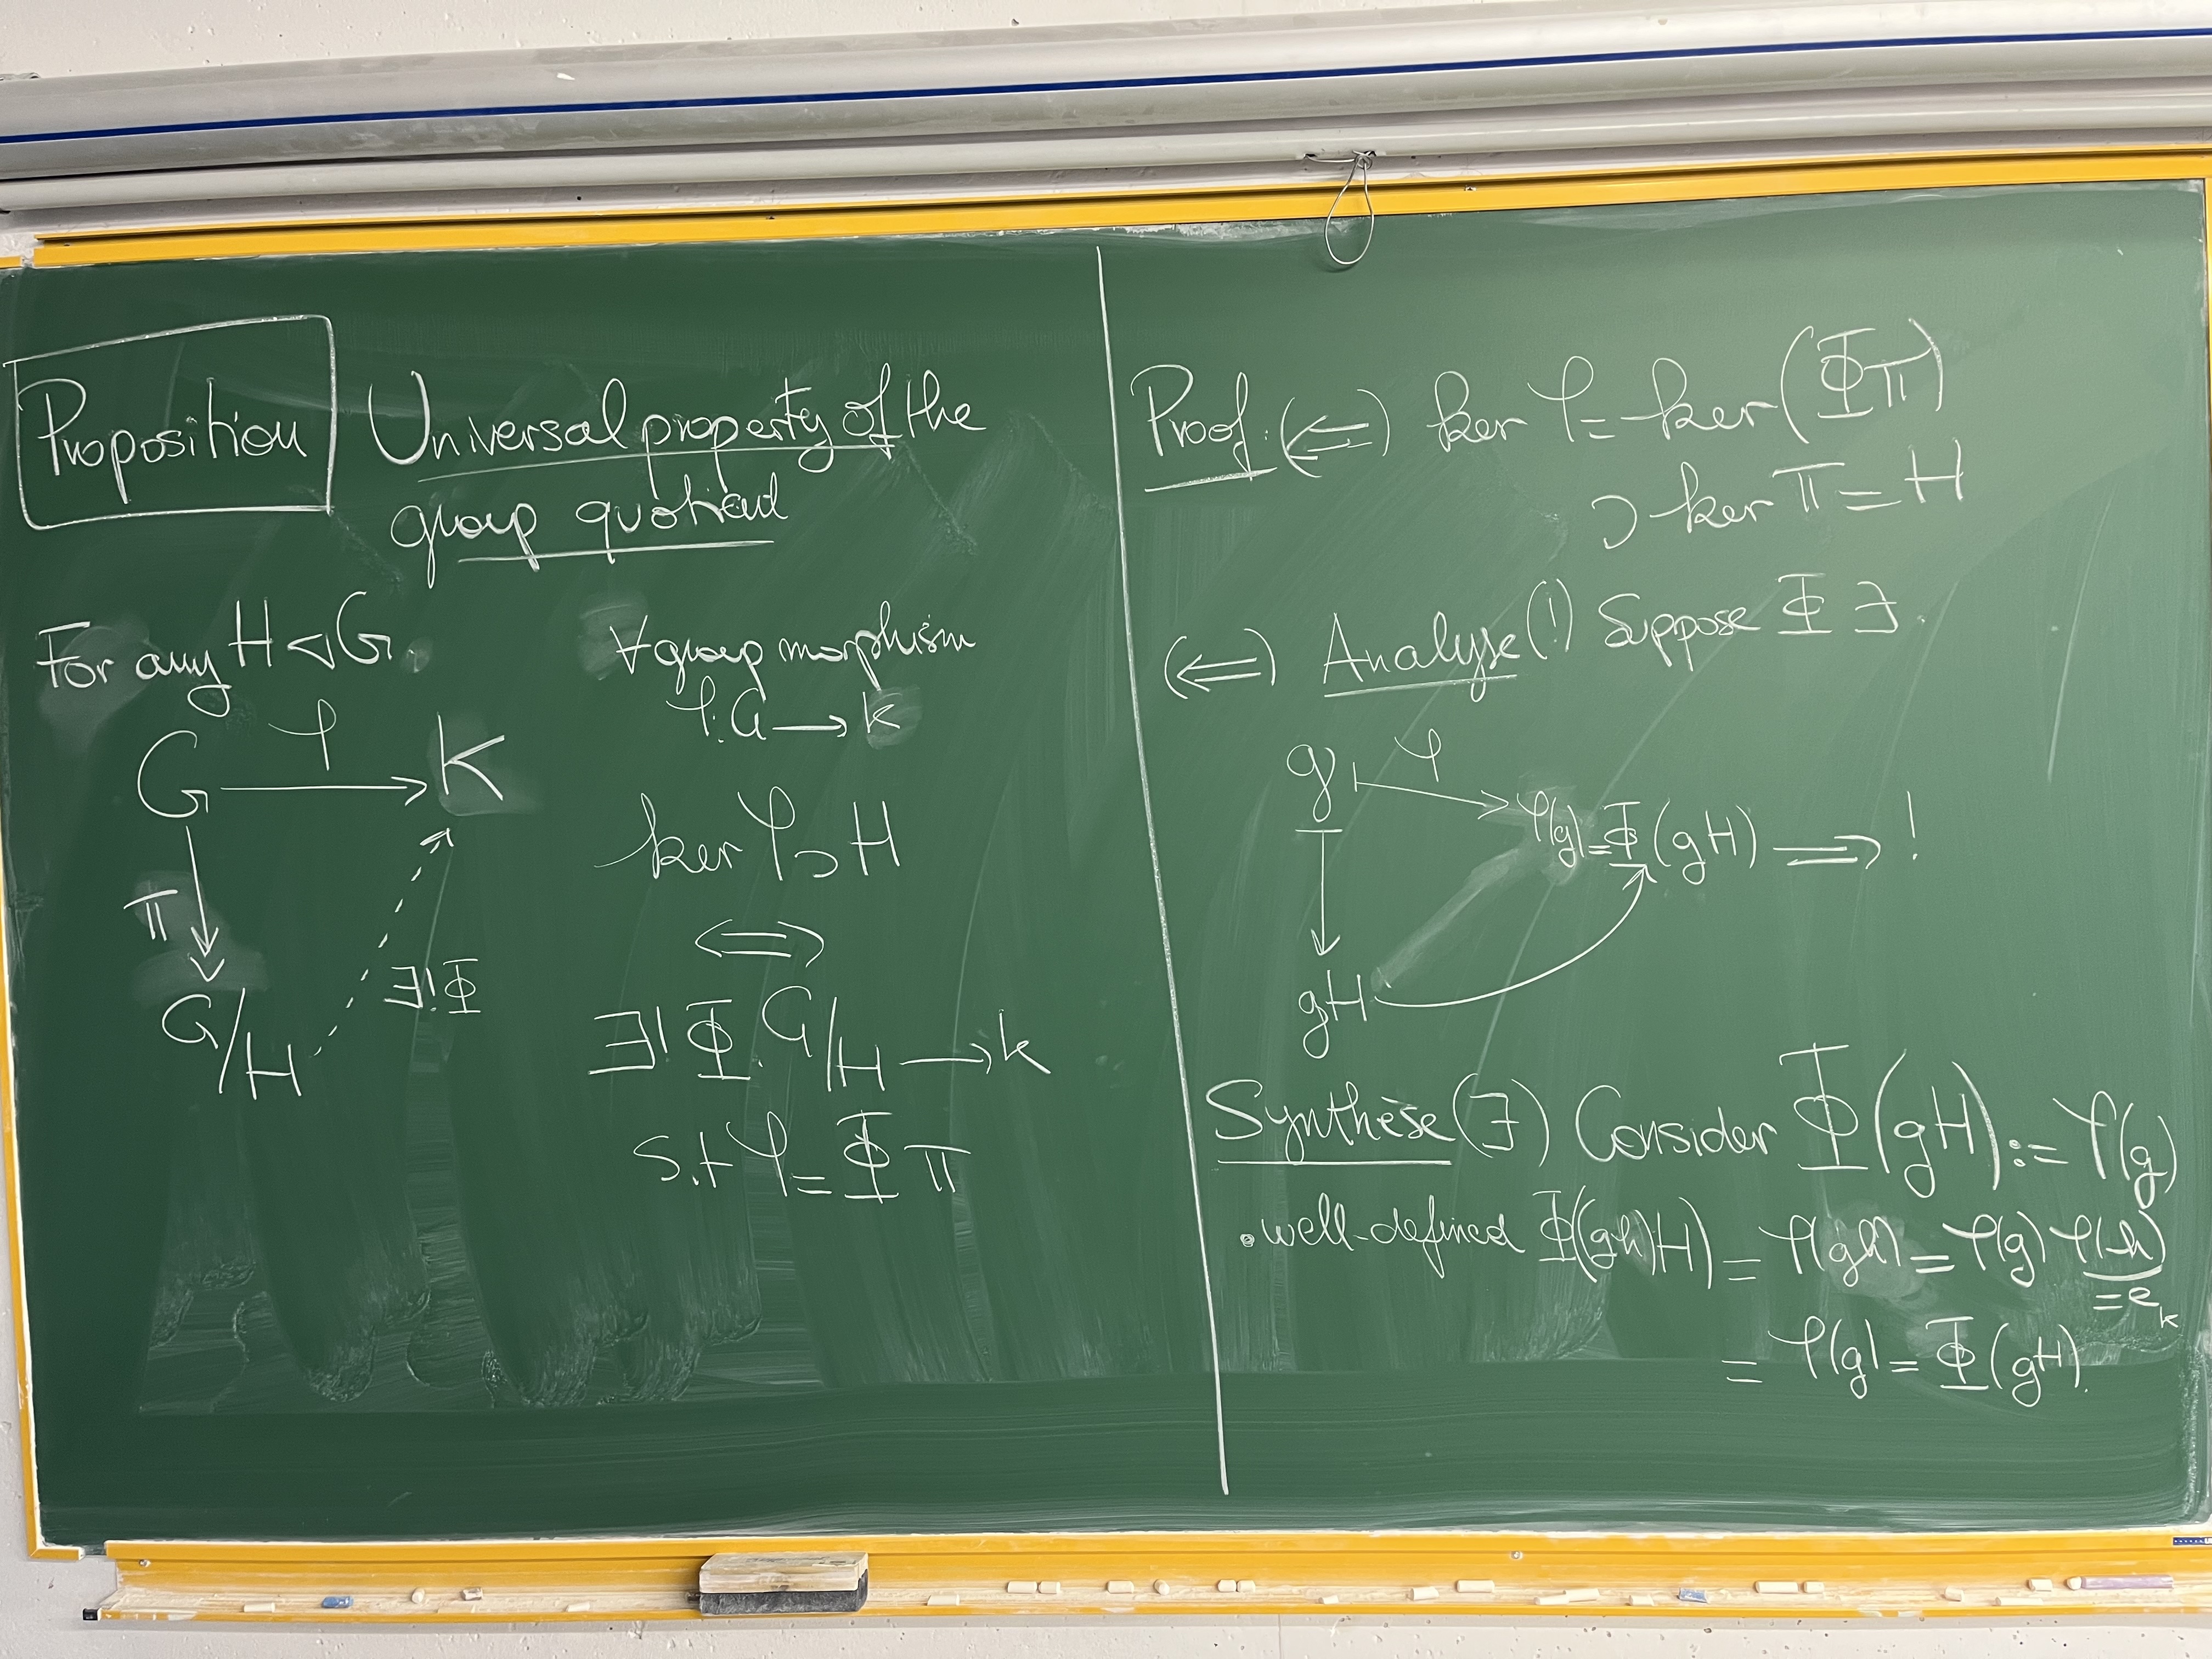 Proposition Universal property of the
group quotient
For any H ◁ G.
G ⟶ K
φ
π
G/H
∃!Φ
∀ group morphism
φ: G ⟶ K
ker φ ⊃ H
⟺
∃! Φ: G/H ⟶ K
s.t φ = Φ π
Proof: (⟸) ker φ = ker(Φπ)
⊃ ker π = H
(⟸) Analyse (!) Suppose Φ ∃.
g ⟼ φ(g) = Φ(gH) ⟹ !
φ
gH
Synthèse (∃) Consider Φ(gH) := φ(g)
• well-defined Φ((gh)H) = φ(gh) = φ(g) φ(h)
= e_K
= φ(g) = Φ(gH).